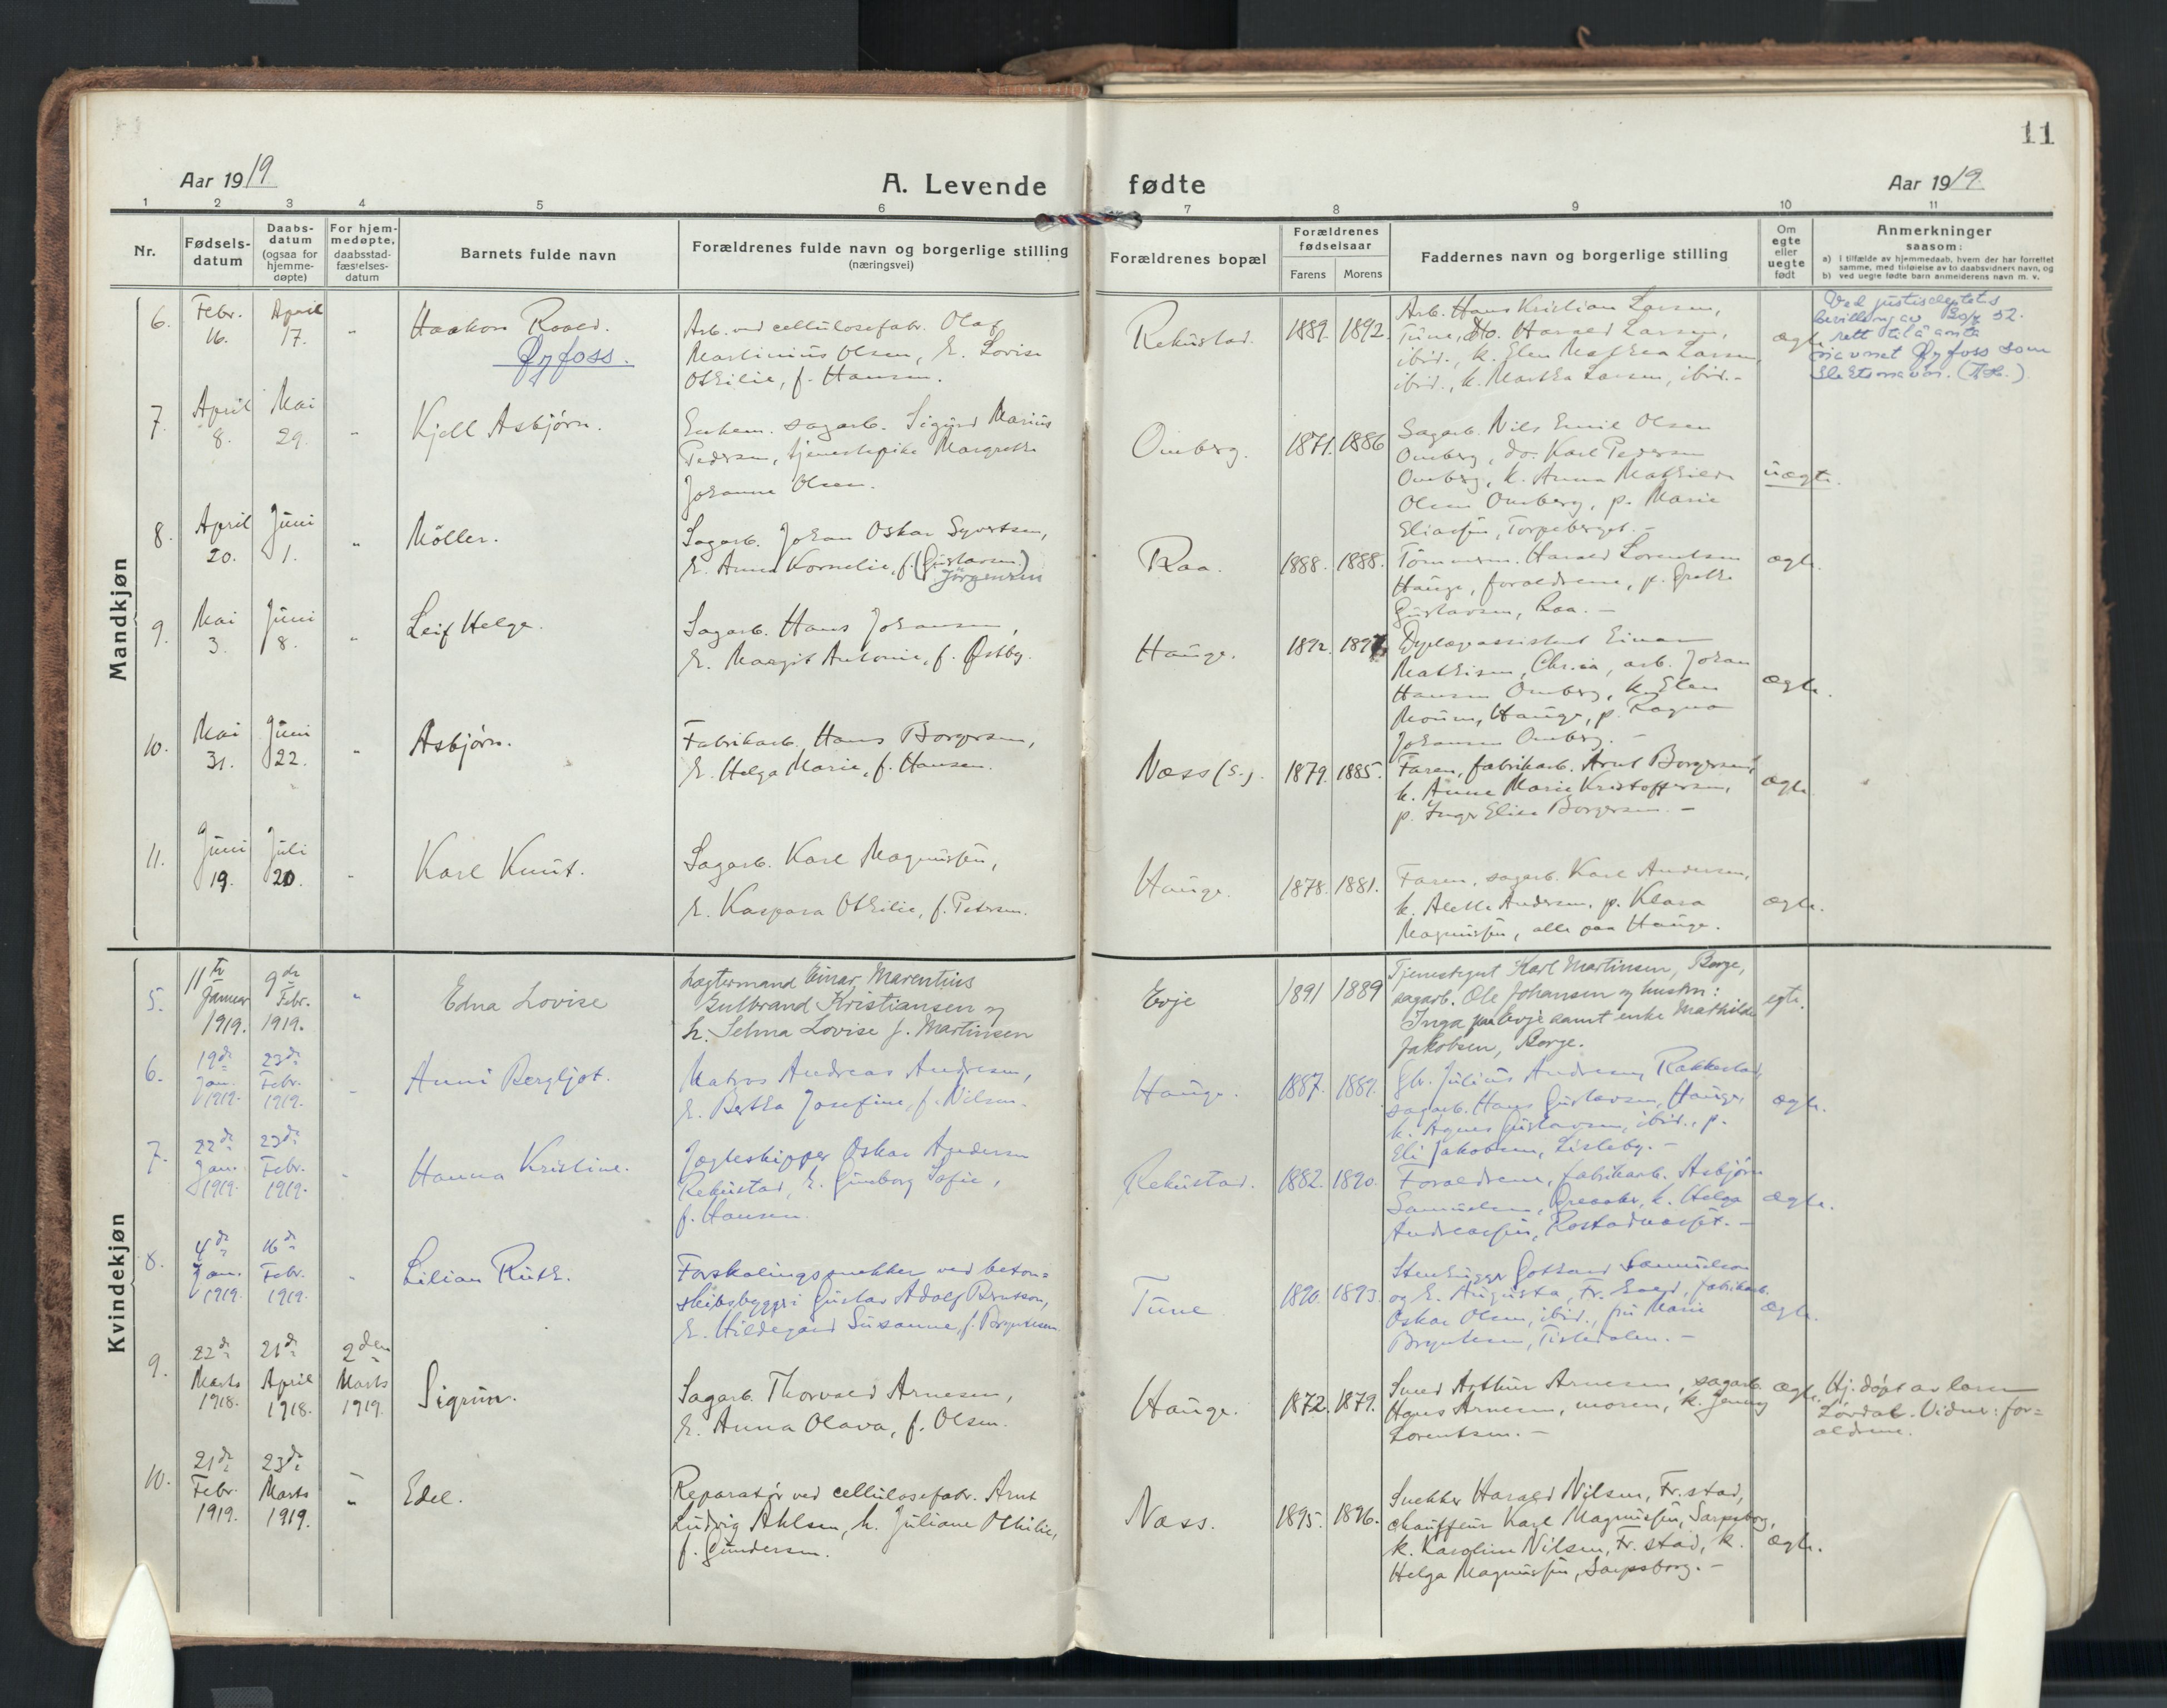 11
Aar 1919
A. Levende fødte
Aar 1919.
1 2 3 4 5 6 7 8 9 10 11
Nr.
Fødsels-
datum
Daabs-
datum
(ogsaa for
hjemme-
døpte)
For hjem-
medøpte,
daabsstad-
fæstelses-
datum
Barnets fulde navn
Forældrenes fulde navn og borgerlige stilling
(næringsvei)
Forældrenes bopæl
Forældrenes
fødselsaar
Farens Morens
Faddernes navn og borgerlige stilling
Om
egte
eller
uegte
født
Anmerkninger
saasom:
a) i tilfælde av hjemmedaab, hvem der har forrettet
samme, med tilføielse av to daabsvidners navn, og
b) ved uegte fødte barn anmelderens navn m. v.
Mandkjøn
6.
Febr.
16.
April
17.
"
Haakon Roald.
Øyfoss.
Arb. ved cellulosefabr. Olaf
Martinius Olsen, h. Lovise
Othilie, f. Hansen.
Rekustad.
1889. 1892.
Arb. Hans Kristian Larsen,
Tune, do. Harald Larsen,
ibid., k. Elen Mathea Larsen,
ibid., k. Martha Larsen, ibid. -
ægte.
Ved justisdeptets
bevilling av 52.
rett til å anta
navnet Øyfoss som
slektsnavn.
7.
April
8.
Mai
29.
"
Kjell Asbjørn.
Enkem. sagarb. Sigurd Marius
Pedersen, tjenestepike Margrethe
Johanne Olsen.
Omberg.
1871. 1886
Sagarb. Nils Emil Olsen
Omberg, do. Karl Pedersen
Omberg, k. Anna Mathilde
Olsen Omberg, p. Marie
Eliassen, Torpeberget. -
uægte.
8.
April
20.
Juni
1.
"
Møller.
Sagarb. Johan Oskar Syvertsen,
h. Anna Kornelie, f. (Gustavsen)
Jørgensen
Raa.
1888. 1888.
Tømmerm. Harald Lorentsen
Hauge, forældrene, p. Grethe
Gustavsen, Raa. -
ægte.
9.
Mai
3.
Juni
8.
"
Leif Helge.
Sagarb. Hans Johansen,
h. Margit Antonie, f. Østby.
Hauge.
1892.
Einar
Mathisen, Chr.ia, arb. Johan
Hansen Omberg, k. Elen
Moum, Hauge, p. Ragna
Johansen Omberg. -
ægte.
10.
Mai
31.
Juni
22.
"
Asbjørn.
Fabrikarb. Hans Borgersen,
h. Helga Marie, f. Hansen.
Næss (s.)
1879. 1885.
Faren, fabrikarb. Arnt Borgersen,
k. Anne Marie Kristoffersen,
p. Inger Elise Borgersen. -
ægte
11.
Juni
19.
Juli
20.
"
Karl Knut.
Sagarb. Karl Magnussen,
h. Kaspara Othilie, f. Petersen.
Hauge.
1878. 1881.
Faren, sagarb. Karl Andersen,
k. Alette Andersen, p. Klara
Magnussen, alle paa Hauge.
ægte.
Kvindekjøn
5.
11te
Januar
1919.
9de
Febr.
1919.
"
Edna Lovise
Lægtermand Einar Marentius
Gulbrand Kristiansen og
h. Selma Lovise f. Martinsen
Evje
1891 1889
Tjenestegut Karl Martinsen, Borge,
sagarb. Ole Johansen og hustru:
Inga paa Evje samt enke Mathilde
Jakobsen, Borge.
egte.
6.
19de
Jan.
1919.
23de
Febr.
1919.
"
Anni Bergljot.
Matros Andreas Andresen,
h. Bertha Josefine, f. Nilsen.
Hauge.
1887. 1889.
Gbr. Julius Andresen, Rakkestad,
sagarb. Hans Gustavsen, Hauge,
k. Agnes Gustavsen, ibid., p.
Eli Jakobsen, Lisleby. -
ægte.
7.
22de
Jan.
1919.
23de
Febr.
1919.
"
Hanna Kristine.
Jægteskipper Oskar Andersen
Rekustad, h. Gunborg Sofie,
f. Hansen.
Rekustad.
1882. 1890.
Forældrene, fabrikarb. Asbjørn
Samuelsen, Greaaker, k. Helga
Andreassen, -
ægte.
8.
4de
Jan.
1919.
16de
Febr.
1919.
"
Lilian Ruth.
Forskalingssnekker ved beton=
skibsbyggeri Gustav Adolf Berntson,
h. Hildegard Susanne, f. Bryntesen
Tune
1890. 1893.
Stenhugger Gothard Samuelson
og h. Augusta, Fr. hald, fabrikarb.
Oskar Olsen, ibid., fru Marie
Bryntesen, Tistedalen. -
ægte.
9.
22de
Marts
1918.
21de
April
1918.
2den
Marts
1919.
Sigrun.
Sagarb. Thorvald Arnesen,
h. Anna Olava, f. Olsen.
Hauge.
1872. 1879.
Smed Arthur Arnesen, sagarb.
Hans Arnesen, moren, k. Jenny
Lorentsen. -
ægte.
Hj. døpt av lærer
Lørdal. Vidner: for=
ældrene.
10.
21de
Febr.
1919.
23de
Marts
1919.
"
Edel.
Reparatør ved cellulosefabr. Arnt
Ludvig Ahlsen, h. Juliane Othilie,
f. Gundersen.
Næss.
1895. 1896.
Snekker Harald Nilsen, Fr.stad,
chauffeur Karl Magnussen, Sarpsborg,
k. Karoline Nilsen, Fr.stad, k.
Helga Magnussen, Sarpsborg. -
ægte.